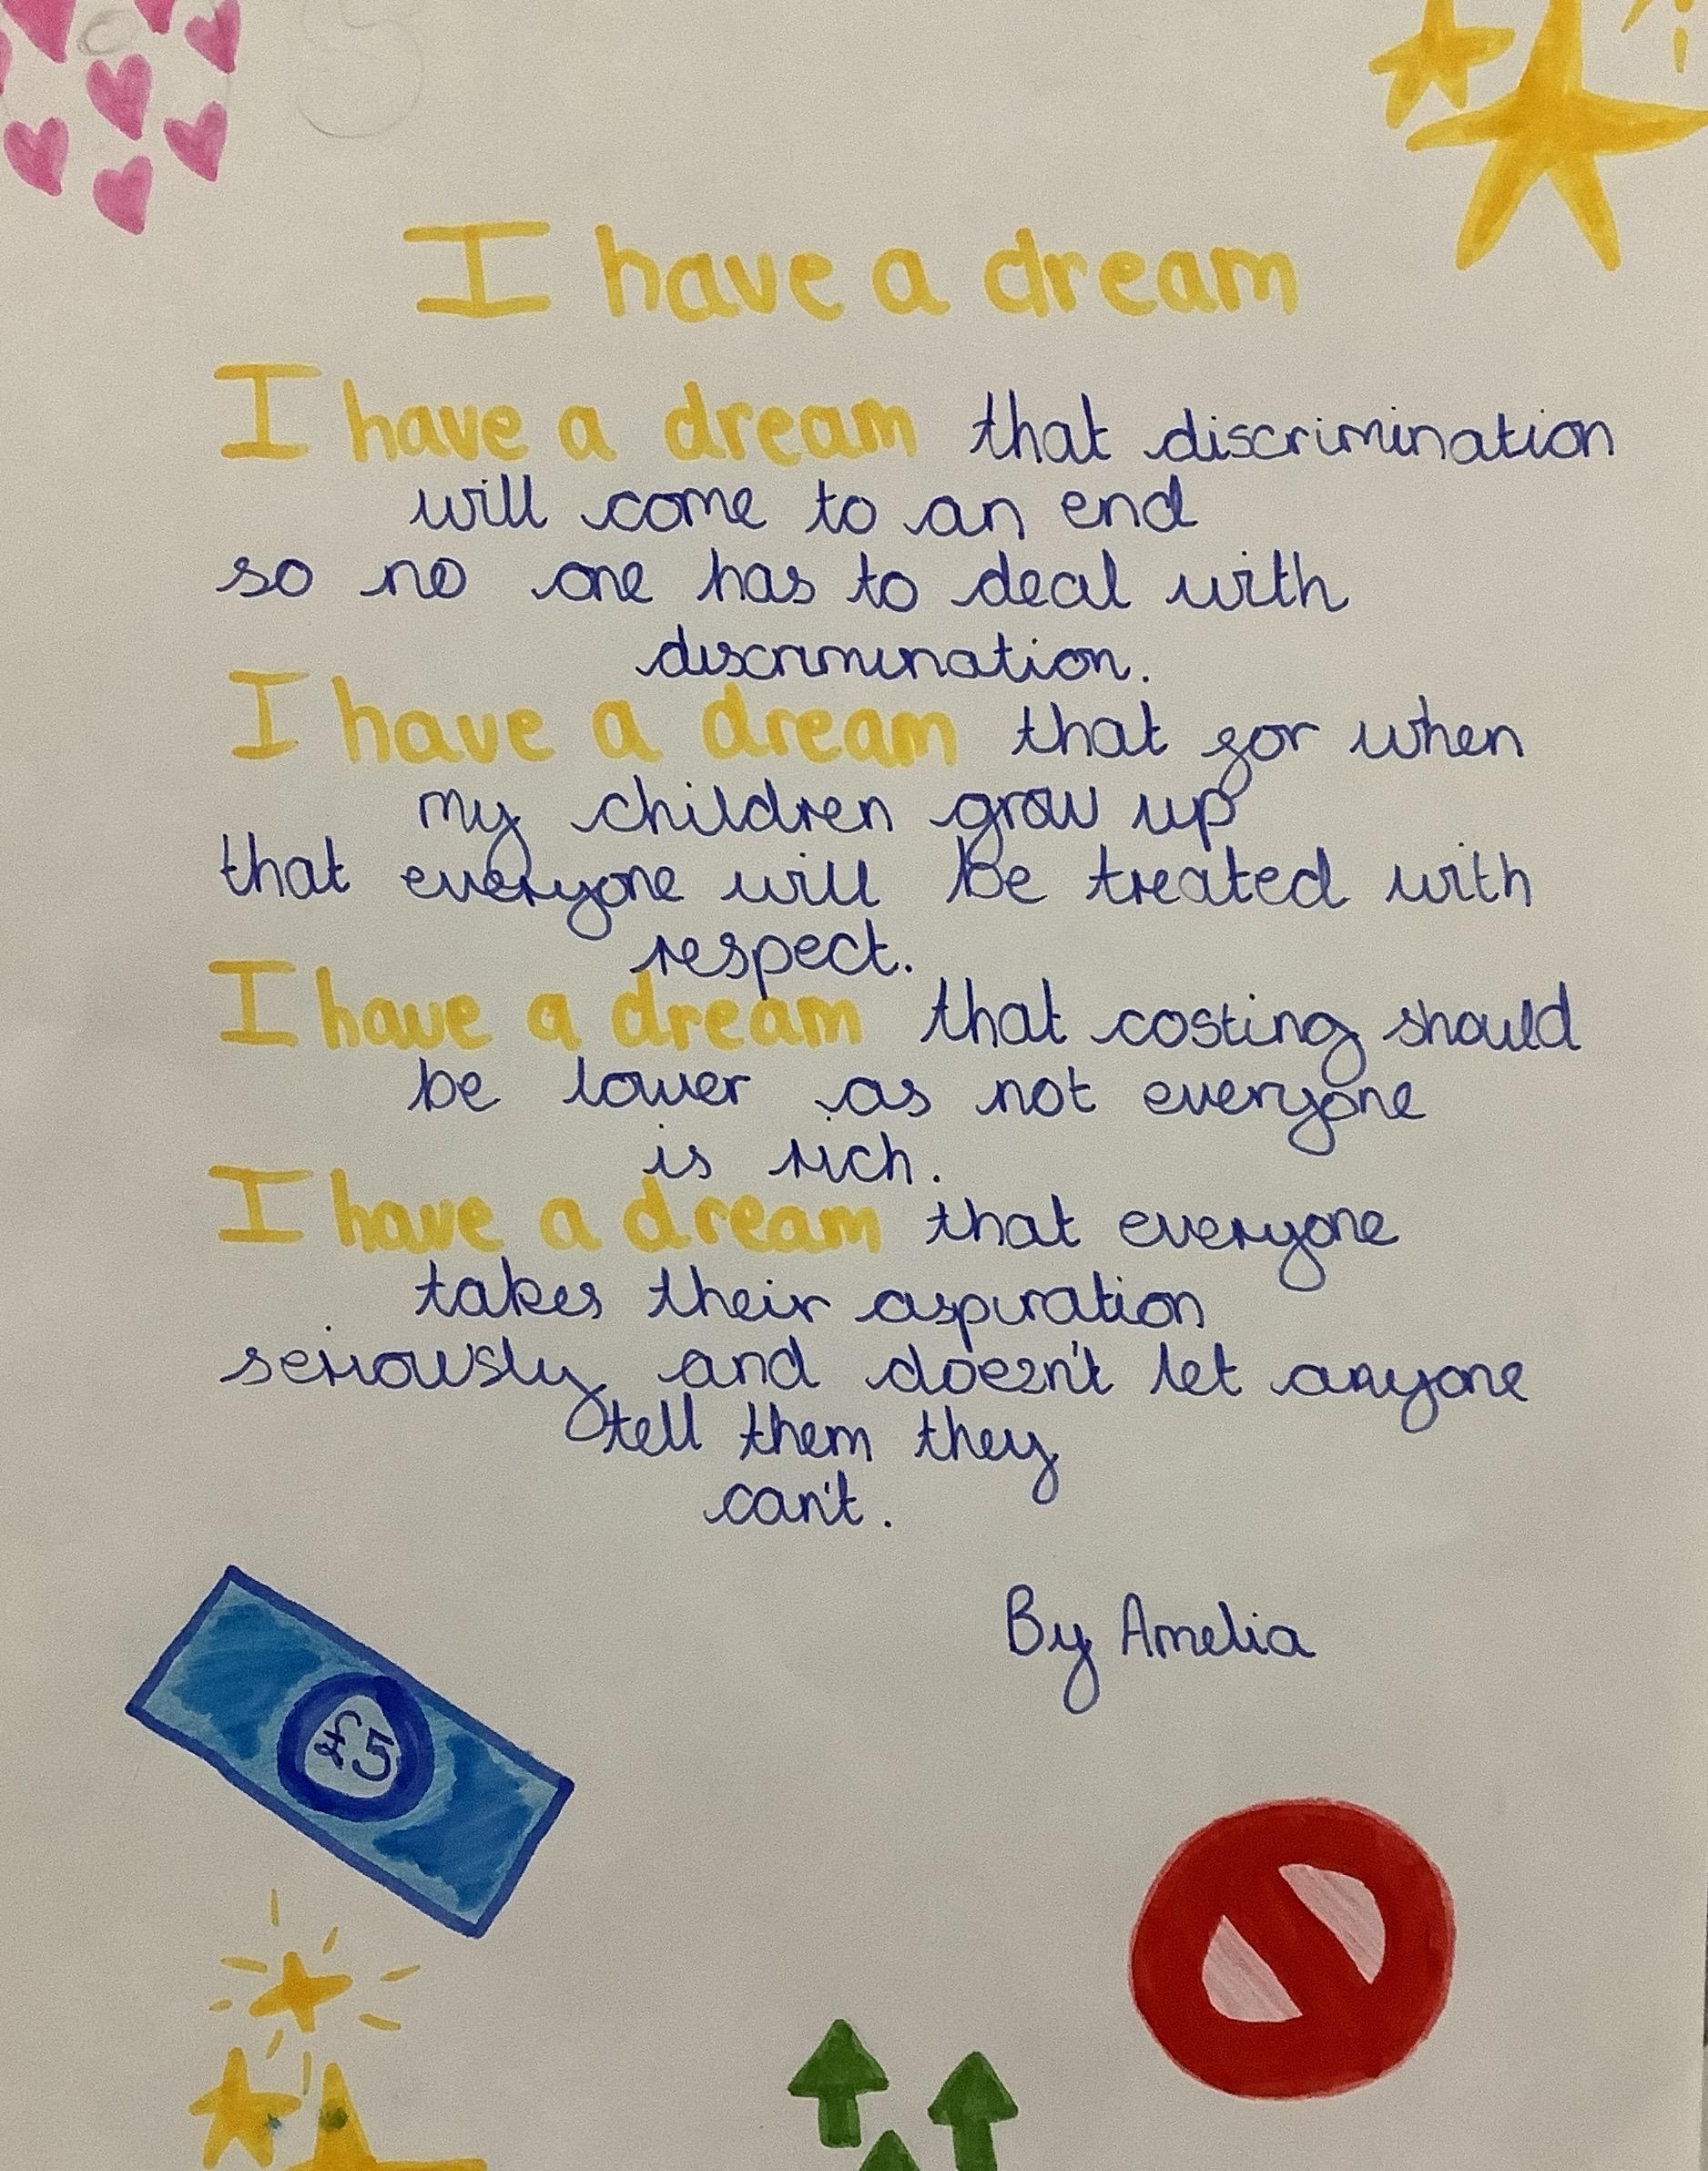 I have a dream
I have a dream that discrimination
will come to an end
so no one has to deal with
discrimination.
I have a dream that for when
my children grow up
that everyone will be treated with
respect.
I have a dream that costing should
be lower as not everyone
is rich.
I have a dream that everyone
takes their aspiration
seriously and doesn't let anyone
tell them they
can't.
By Amelia
£5